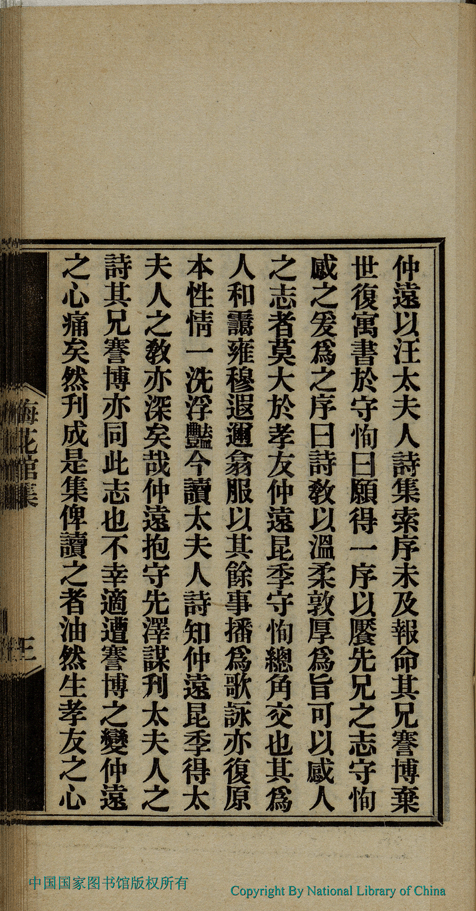 仲遠以汪太夫人詩集索序未及報命其兄謇博棄
世復寓書於守恂曰願得一序以饜先兄之志守恂
感之爰爲之序曰詩敎以溫柔敦厚爲旨可以感人
之志者莫大於孝友仲遠昆季守恂總角交也其爲
人和靄雍穆遐邇翕服以其餘事播爲歌詠亦復原
本性情一洗浮豔今讀太夫人詩知仲遠昆季得太
夫人之敎亦深矣哉仲遠抱守先澤謀刋太夫人之
詩其兄謇博亦同此志也不幸適遭謇博之變仲遠
之心痛矣然刋成是集俾讀之者油然生孝友之心
梅花館集
中国国家图书馆版权所有
Copyright By National Library of China